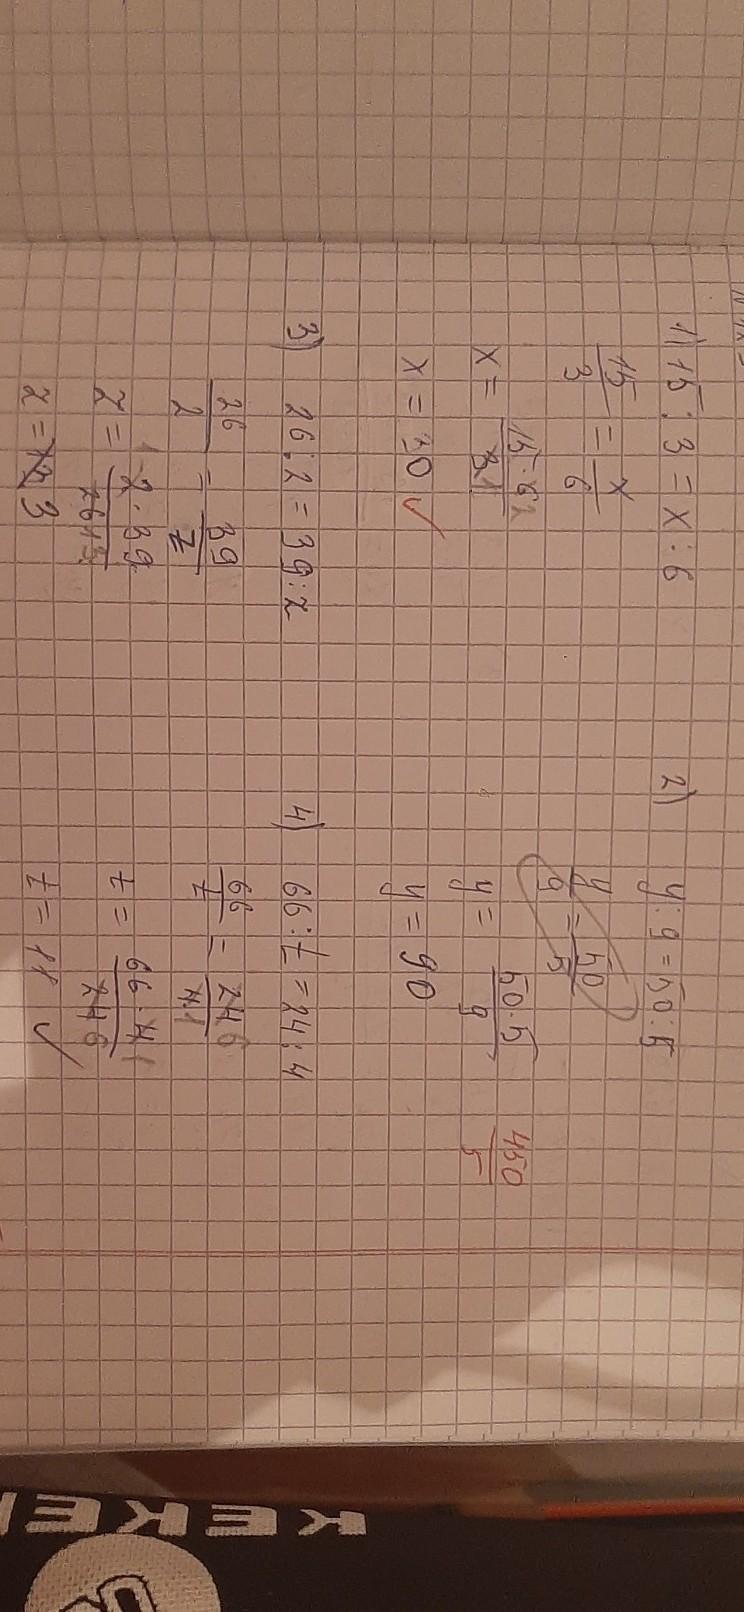 1) 15 : 3 = x : 6
15/3 = x/6
x = 15 · 6 2 / 3 1
x = 30 ✓
2) y : 9 = 50 : 5
y/9 = 50/5
y = 50 · 5 / 9
450/5
y = 90
3) 26 : 2 = 39 : z
26/2 = 39/z
z = 1 2 · 39 / 26 13
z = 3
4) 66 : t = 24 : 4
66/t = 24 6 / 4 1
t = 66 · 4 1 / 24 6
t = 11 ✓
KEKE